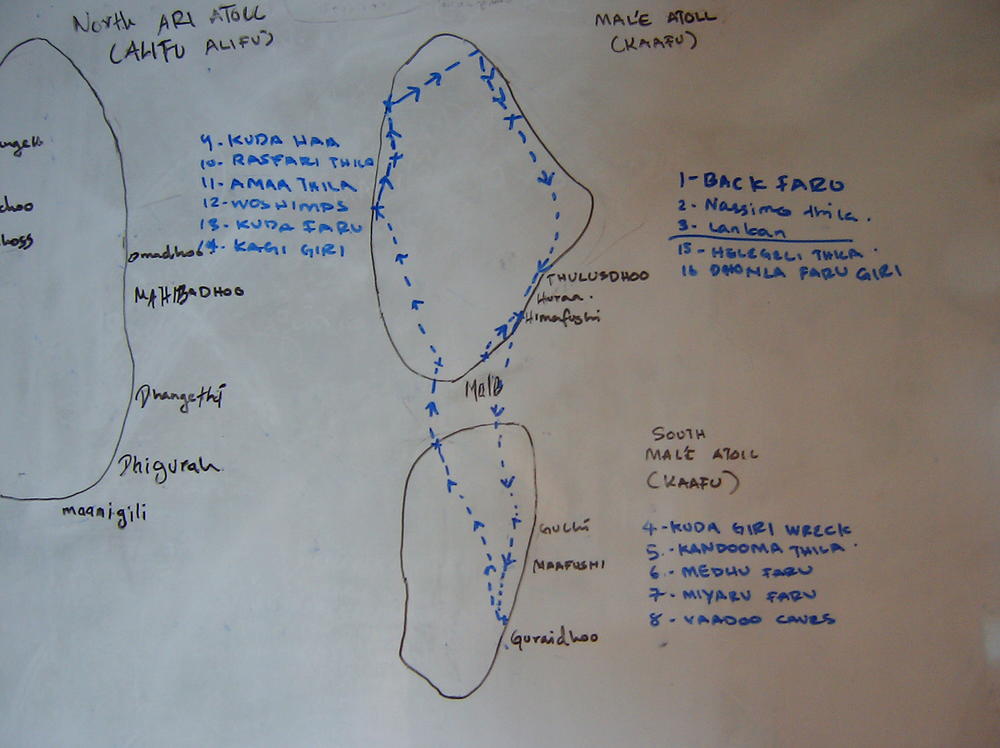 North ARI ATOLL
(ALIFU ALIFU)
MALÉ ATOLL
(KAAFU)
9. KUDA HAA
10- RASFARI THILA
11- AMAA THILA
12- WOSHIMAS
13- KUDA FARU
14- KAGI GIRI
1- BACK FARU
2- Nassimo thila.
3- Lankan
15- HELEGELI THILA.
16 DHONLA FARU GIRI
omadhoo
MAHIBADHOO
Dhangethi
Dhigurah
maamigili
THULUSDHOO
Huraa.
Himafushi
Male
SOUTH
MALÉ ATOLL
(KAAFU)
GULHI
MAAFUSHI
Guraidhoo
4- KUDA GIRI WRECK
5. KANDOOMA THILA.
6- MEDHU FARU
7- MIYARU FARU
8- VAADOO CAVES